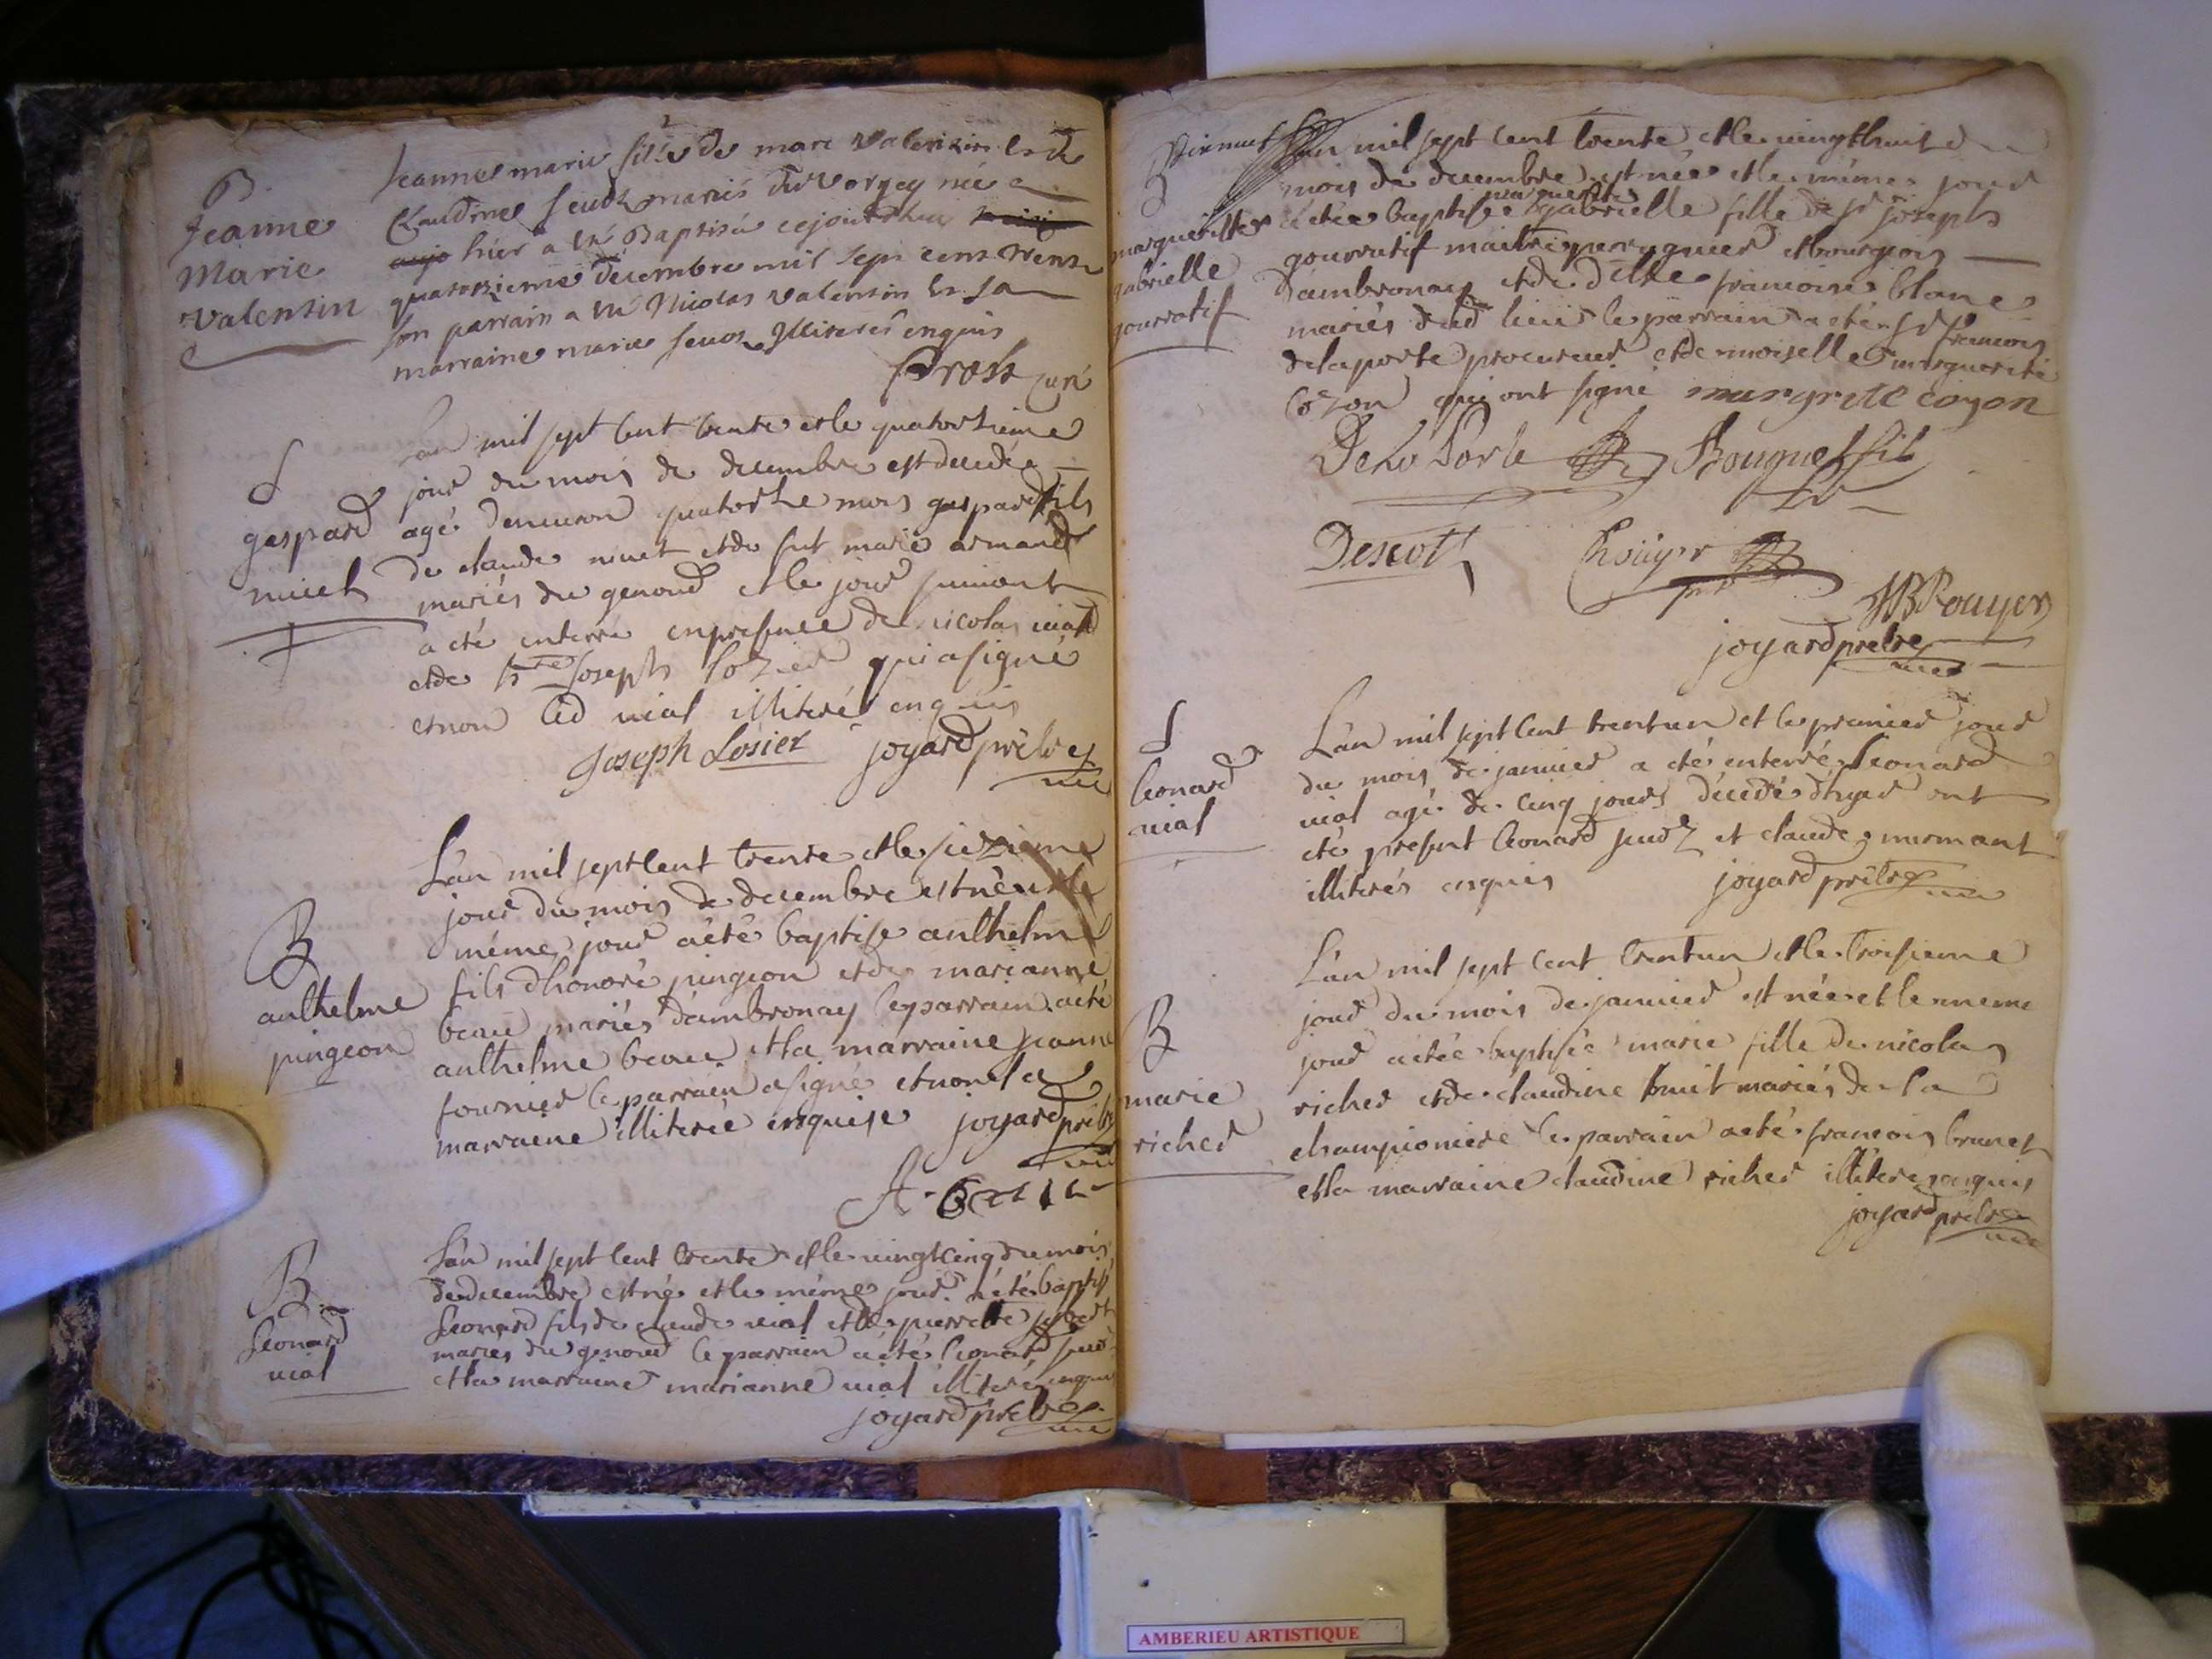 B.
Jeanne
Marie
Valentin
Jeanne marie fille de marc Valentin et de
Claudine seudz mariés du vorgey née
hier a été Baptisée cejourdhui
quatorzieme décembre mil sept cens trente
son parrain a été Nicolas Valentin et sa
marraine marie illiterés enquis
Gross curé
S
gaspard
niuet
L'an mil sept cent trente et le quatorzieme
jour du mois de decembre est decedé
agé denuiron quatorze mois gaspard fils
de claude niuet et de fut marie armand
mariés du genoud et le jour suiuant
a eté enterré en presence de nicolas uial
et de Joseph lozier qui a signé
et non led uial illiteré enquis
Joseph Losier joyard prêtre
uic
B
anthelme
pingeon
L'an mil sept cent trente et le seizieme
jour du mois de decembre est né et le
même jour a été baptise anthelme
fils dhonoré pingeon et de marianne
beau mariés dambronay le parrain a eté
anthelme beau et la marraine jeanne
fournier le parrain a signé et non la
marraine illiterée enquise joyard prêtre
uic
B
Leonard
uial
L'an mil sept cent trente et le uingt cinq du mois
de decembre est né et le même jour a été baptisé
Leonard fils de claude uial et de pierrette
mariés du genoud le parrain a été leonard
et la marraine marianne uial illiterés enquis
joyard prêtre
uic
B
margueritte
gabrielle
gourratif
L'an mil sept cent trente et le uingt huit du
mois de decembre est née et le même jour
marguerite
a etée baptisée gabrielle fille de sr joseph
gourratif maitre perruquier et bourgeois
dambronay et de dlle francoise blanc
mariés dud lieu le parrain a été sr francois
delaporte procureur et demoiselle marguerite
cozon qui ont signé margrite cozon
De La Porte Bouquet fils
Descott Rouyer
JB Rouyer
joyard prêtre
uic
S
leonard
uial
L'an mil sept cent trent un et le premier jour
du mois de januier a eté enterré Leonard
uial agé de cinq jours décédé dhyer ont
eté present leonard seudz et claude murmant
illiterés enquis joyard prêtre
uic
B
marie
richer
L'an mil sept cent trent un et le troisieme
jour du mois de januier est née et le meme
jour a etée baptisée marie fille de nicolas
richer et de claudine bruit mariés de la
championiere le parrain a eté francois brunet
et la marraine claudine richer illiteres enquis
joyard prêtre
uic
AMBERIEU ARTISTIQUE